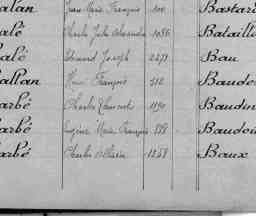 alan Jean Marie François 100 Bastar
alé Charles Jules Alexandre 1086 Bataille
alé Edmond Joseph 2277 Bau
allan François 512 Baudo
arbé Charles Edmond 1190 Baudin
arbé Eugène Marie François 888 Baudoi
arbé Charles 1258 Baux